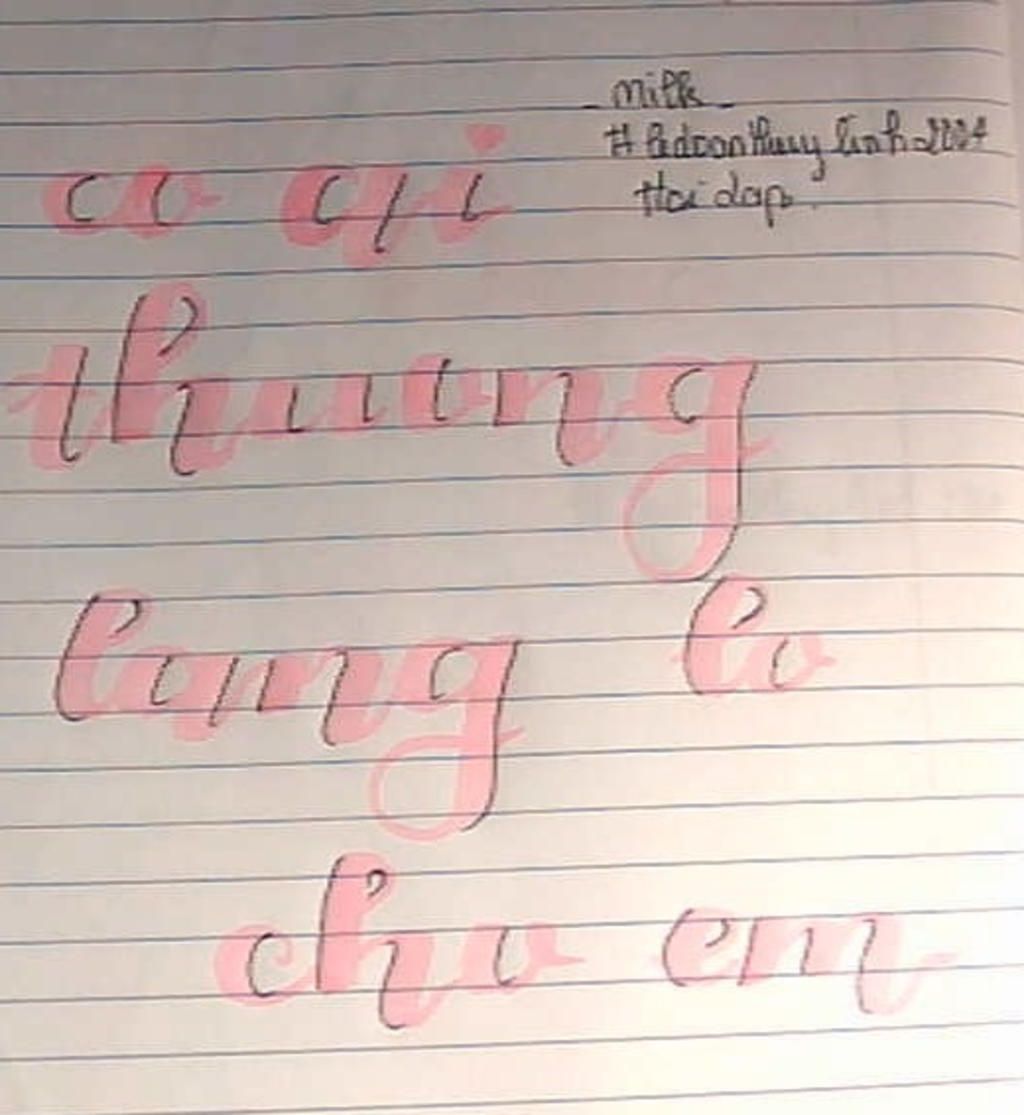 - milk -
# Bdoanthuy linh-2004
Hoidap.
co ai
thuong
lang lo
cho em